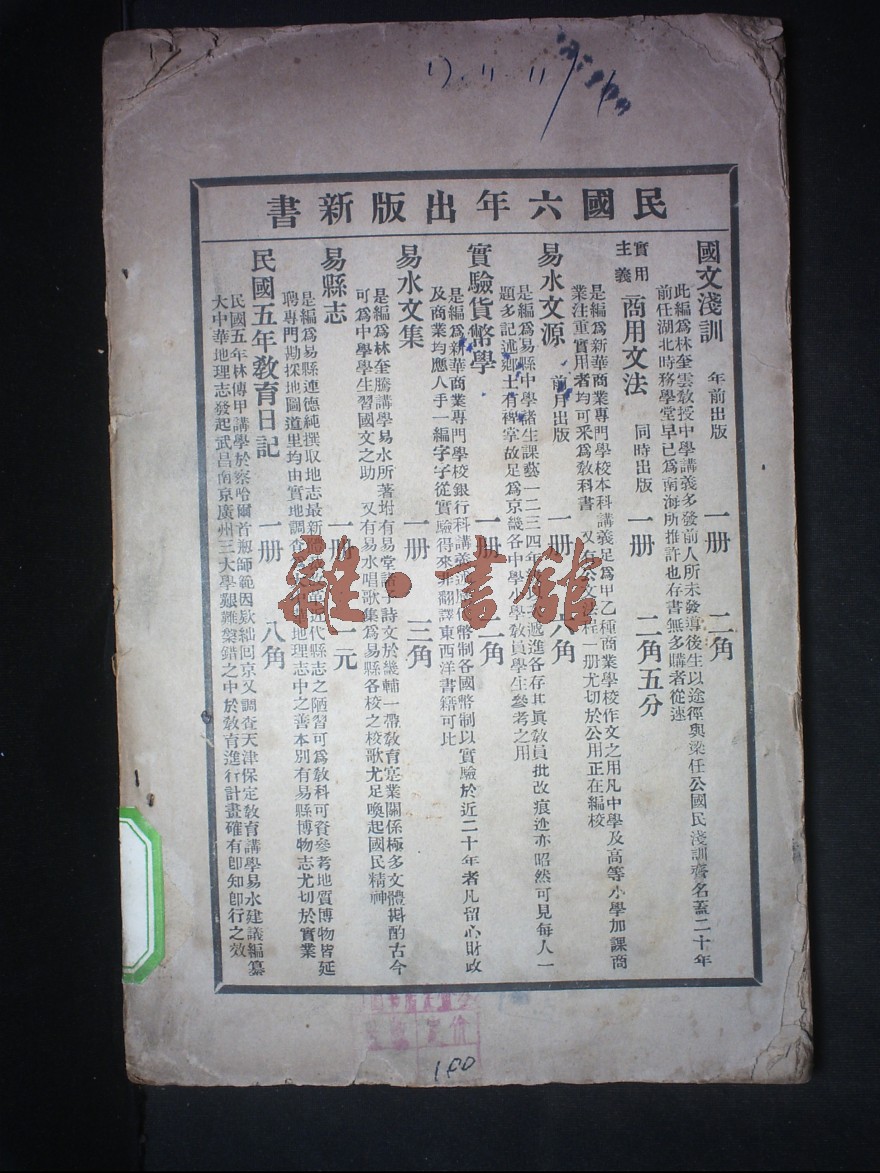 民國六年出版新書
國文淺訓 年前出版 一册 二角
此編爲林奎雲教授中學講義多發前人所未發導後生以途徑與梁任公國民淺訓齊名蓋二十年
前任湖北時務學堂早已爲南海所推許也存書無多購者從速
實用主義 商用文法 同時出版 一册 二角五分
是編爲新華商業專門學校本科講義足爲甲乙種商業學校作文之用凡中學及高等小學加課商
業注重實用者均可采爲教科書 又有公文程一册尤切於公用正在編校
易水文源 前月出版 一册 六角
是編爲易縣中學諸生課藝一二三四年遞進各存其眞教員批改痕迹亦昭然可見每人一
題多記述鄉土有裨掌故足爲京畿各中學小學教員學生參考之用
實驗貨幣學 一册 二角
是編爲新華商業專門學校銀行科講義幣制各國幣制以實驗於近二十年者凡留心財政
及商業均應人手一編字字從實驗得來非翻譯東西洋書籍可比
易水文集 一册 三角
是編爲林奎騰講學易水所著坿有易堂諸子詩文於畿輔一帶教育實業關係極多文體斟酌古今
可爲中學學生習國文之助 又有易水唱歌集爲易縣各校之校歌尤足喚起國民精神
易縣志 一册 一元
是編爲易縣連德純撰取地志最新近代縣志之陋習可爲教科可資參考地質博物皆延
聘專門勘採地圖道里均由實地調查地理志中之善本別有易縣博物志尤切於實業
民國五年敎育日記 一册 八角
民國五年林傳甲講學於察哈爾首創師範因款絀回京又調查天津保定教育講學易水建議編纂
大中華地理志發起武昌南京廣州三大學艱難槃錯之中於教育進行計畫確有卽知卽行之效
雜·書館
17.11.11
定價
100